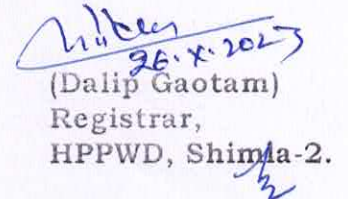 26.X.2023
(Dalip Gaotam)
Registrar,
HPPWD, Shimla-2.